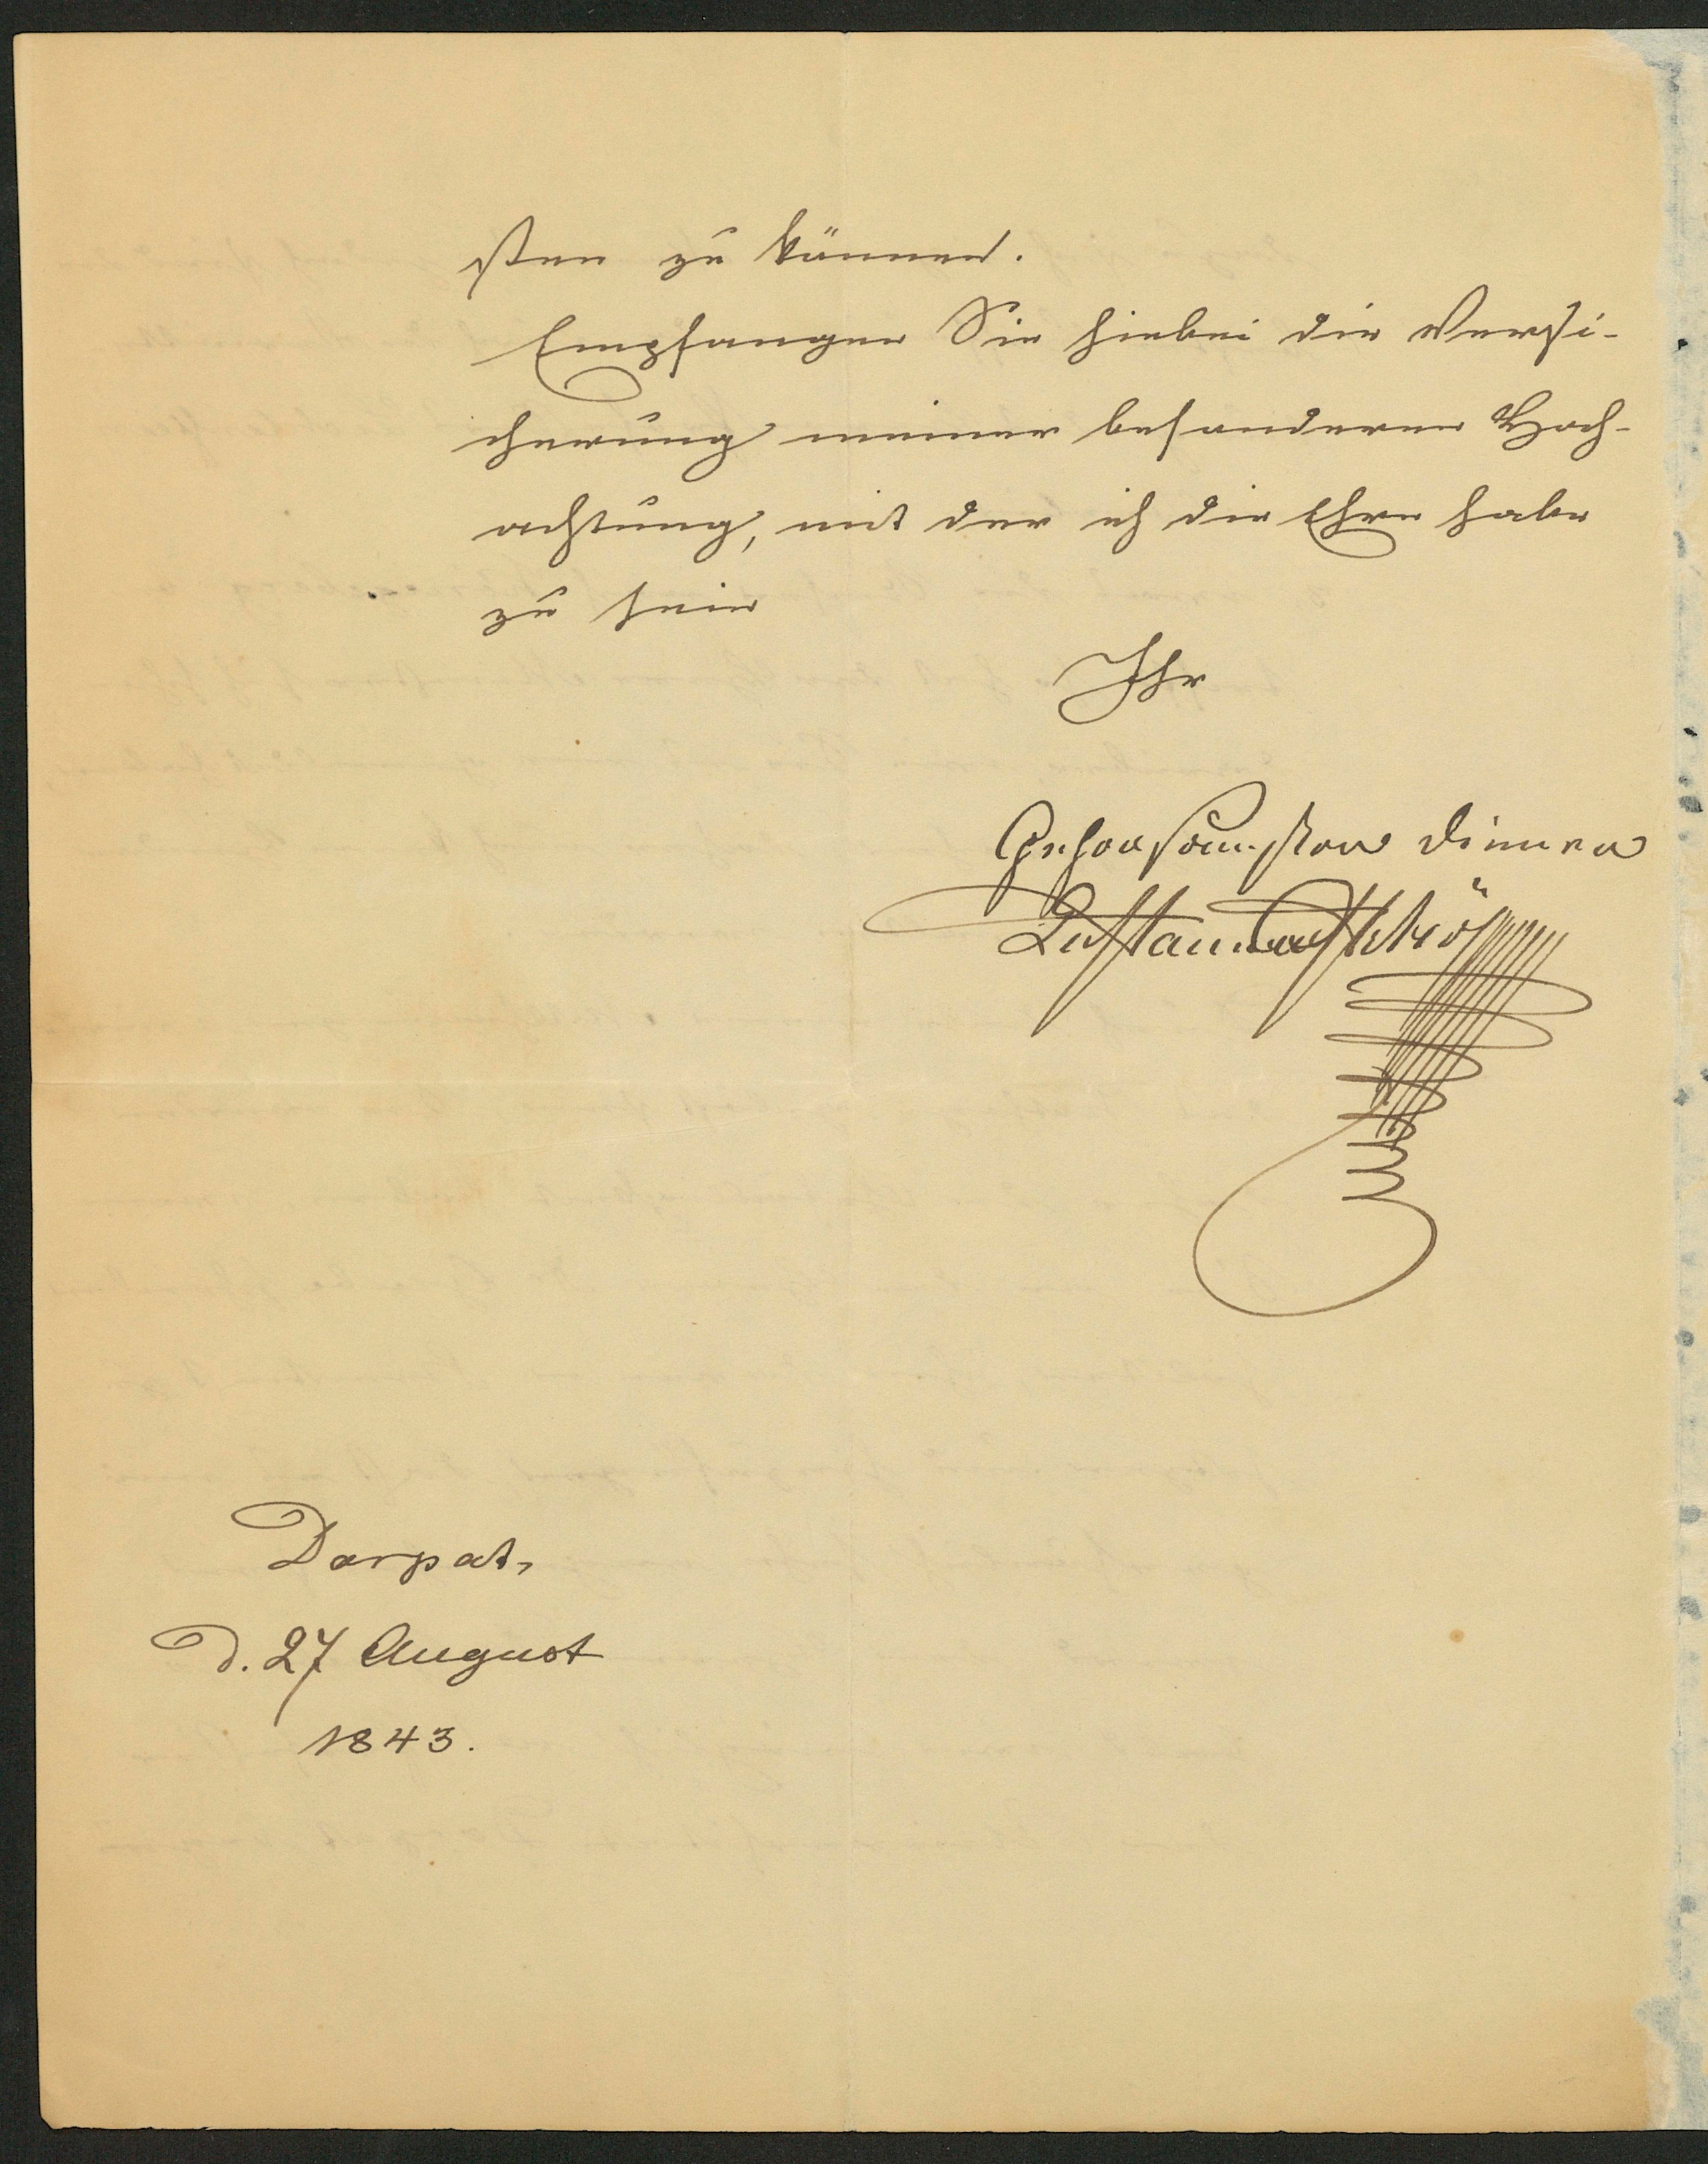 sten zu können.
Empfangen Sie hiebei die Versi-
cherung meiner besonderen Hoch-
achtung, mit der ich die Ehre habe
zu sein
Ihr
Gehorsamster Diener
Dorpat,
d. 27 August
1843.